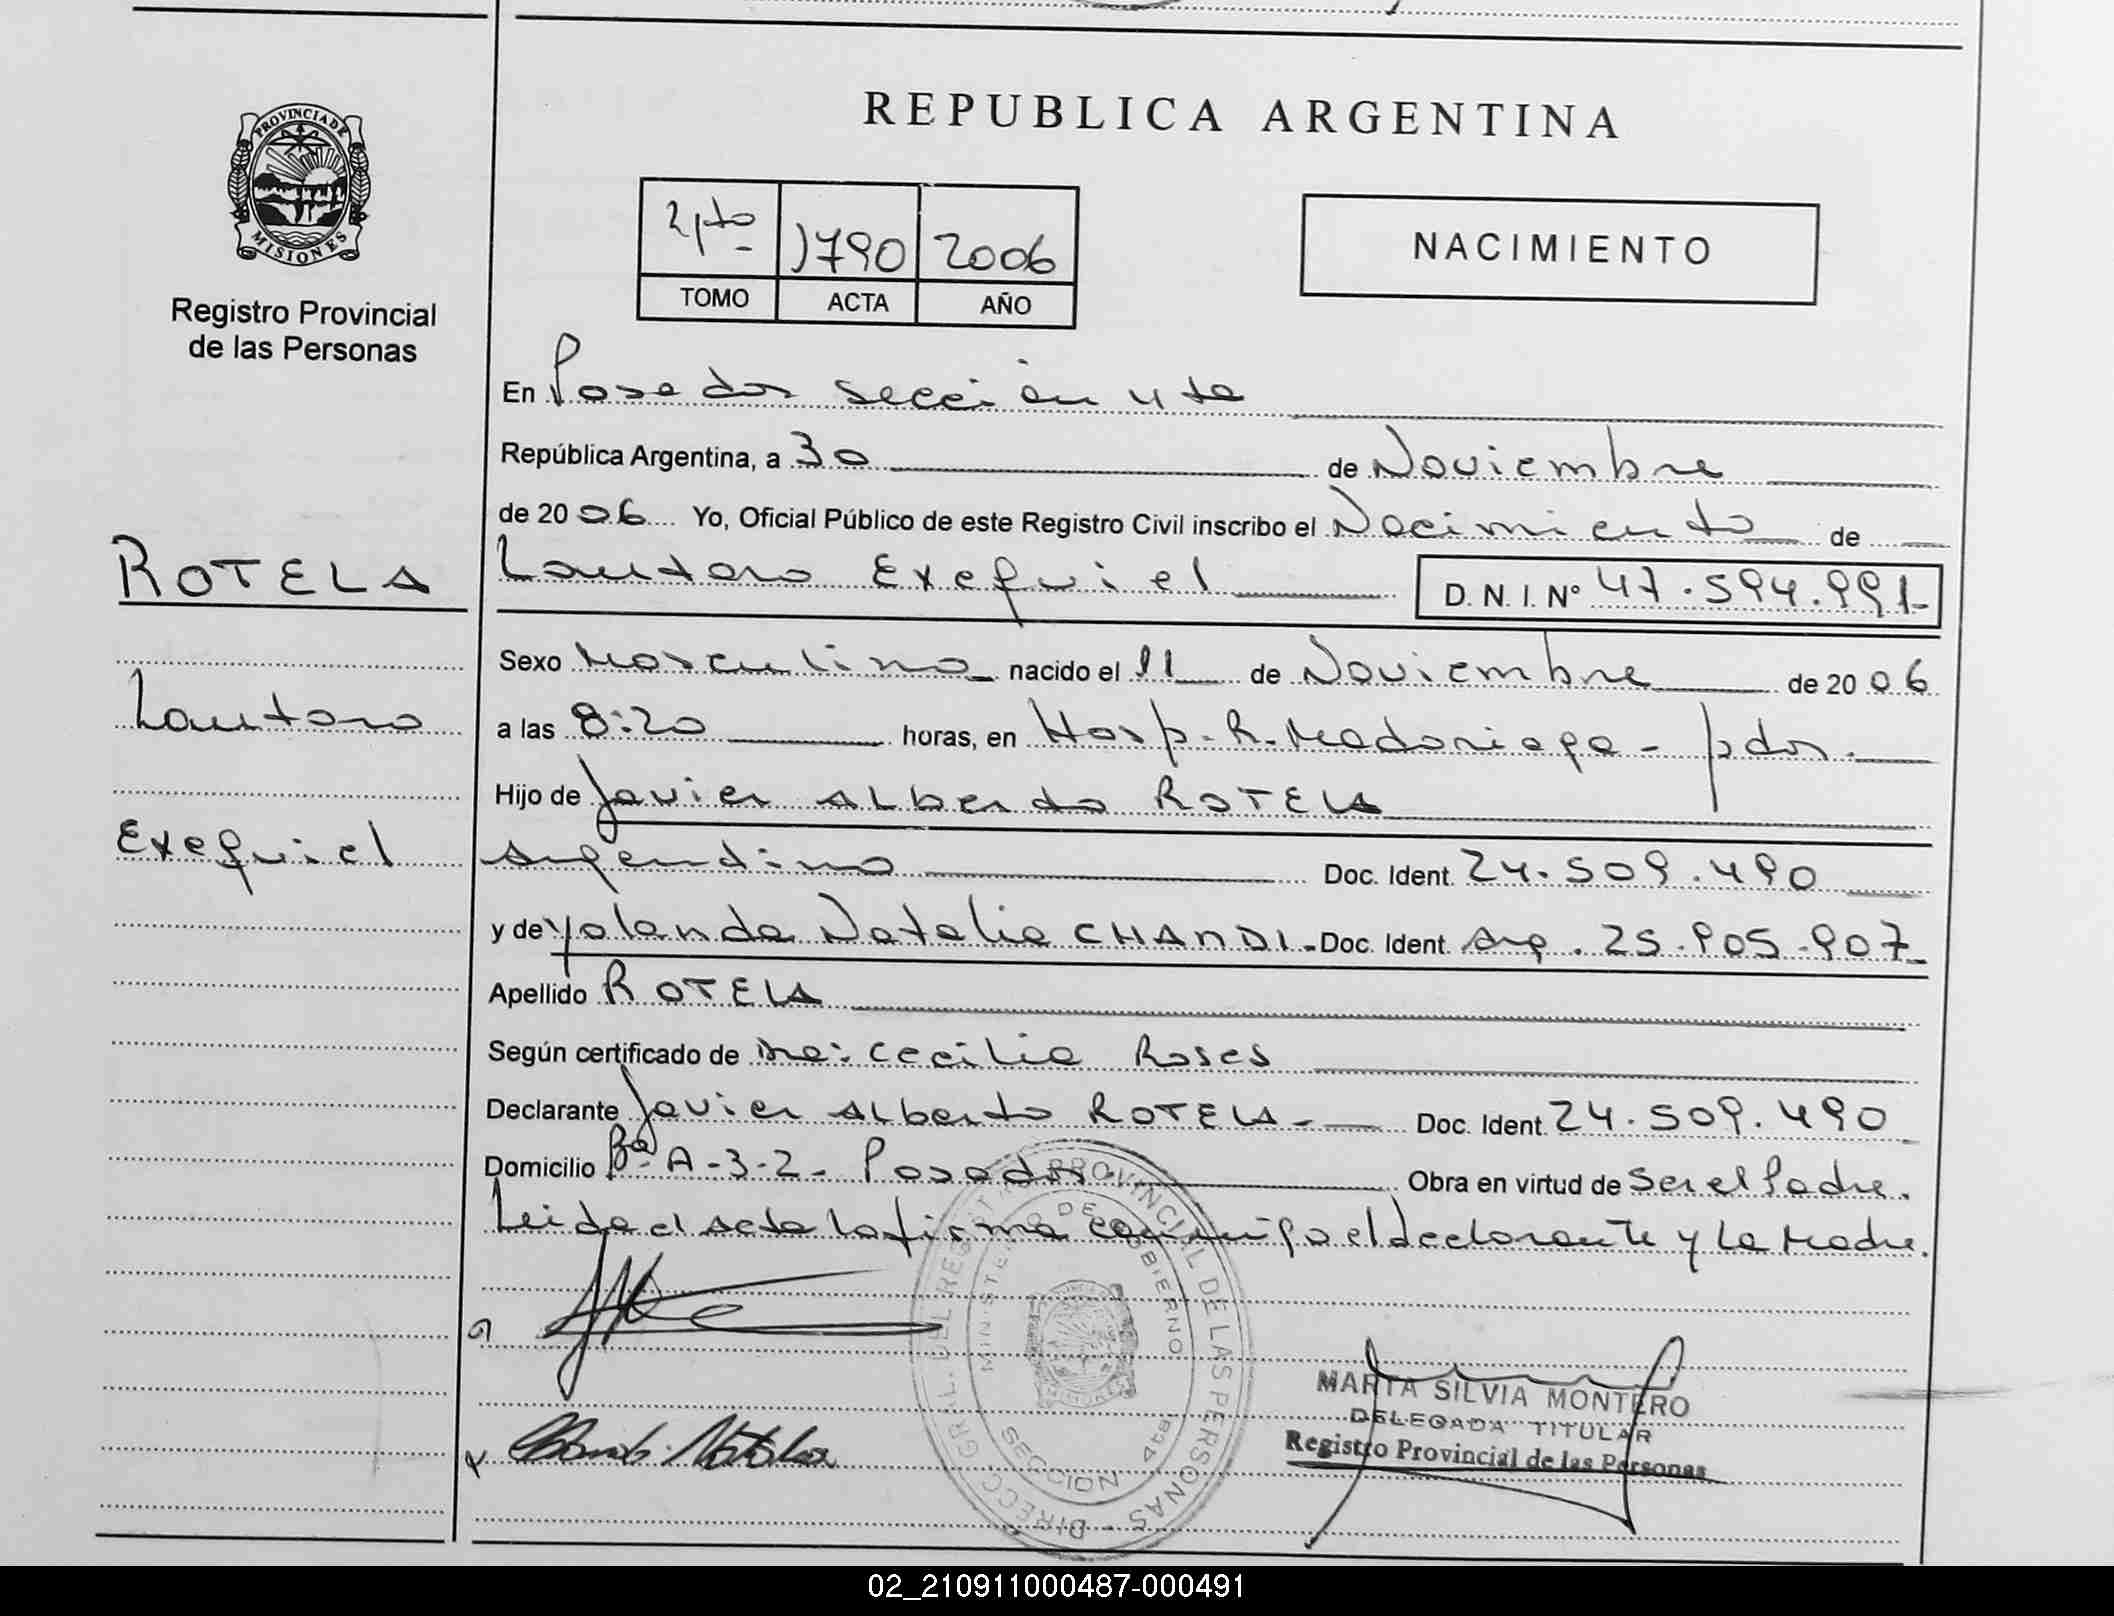 REPUBLICA ARGENTINA
PROVINCIA DE
MISIONES
Registro Provincial
de las Personas
2pto 1790 2006
TOMO ACTA AÑO
NACIMIENTO
En Posadas sección 4ta
República Argentina, a 30 de Noviembre
de 2006 Yo, Oficial Público de este Registro Civil inscribo el Nacimiento de
ROTELA
Lautaro Exequiel D. N. I. Nº 47.594.991-
Lautaro
Exequiel
Sexo Masculino nacido el 11 de Noviembre de 2006
a las 8:20 horas, en Hosp. R. Madariaga - pdas.
Hijo de Javier ALberto ROTELA
Argentino Doc. Ident. 24.509.490
y de Yolanda Natalia CHANDI - Doc. Ident. Arg. 25.905.907
Apellido ROTELA
Según certificado de Dra: Cecilia Roses
Declarante Javier ALberto ROTELA - Doc. Ident. 24.509.490
Domicilio Bº A-3-2- Posadas Obra en virtud de Ser el Padre.
Leida el Acta La firma conmigo el declarante y La Madre.
DIRECC. GRAL. DEL REGISTRO PROVINCIAL DE LAS PERSONAS
MINISTERIO DE GOBIERNO
SECCION 4ta
Chandi Natalia
MARTA SILVIA MONTERO
DELEGADA TITULAR
Registro Provincial de las Personas
02_210911000487-000491